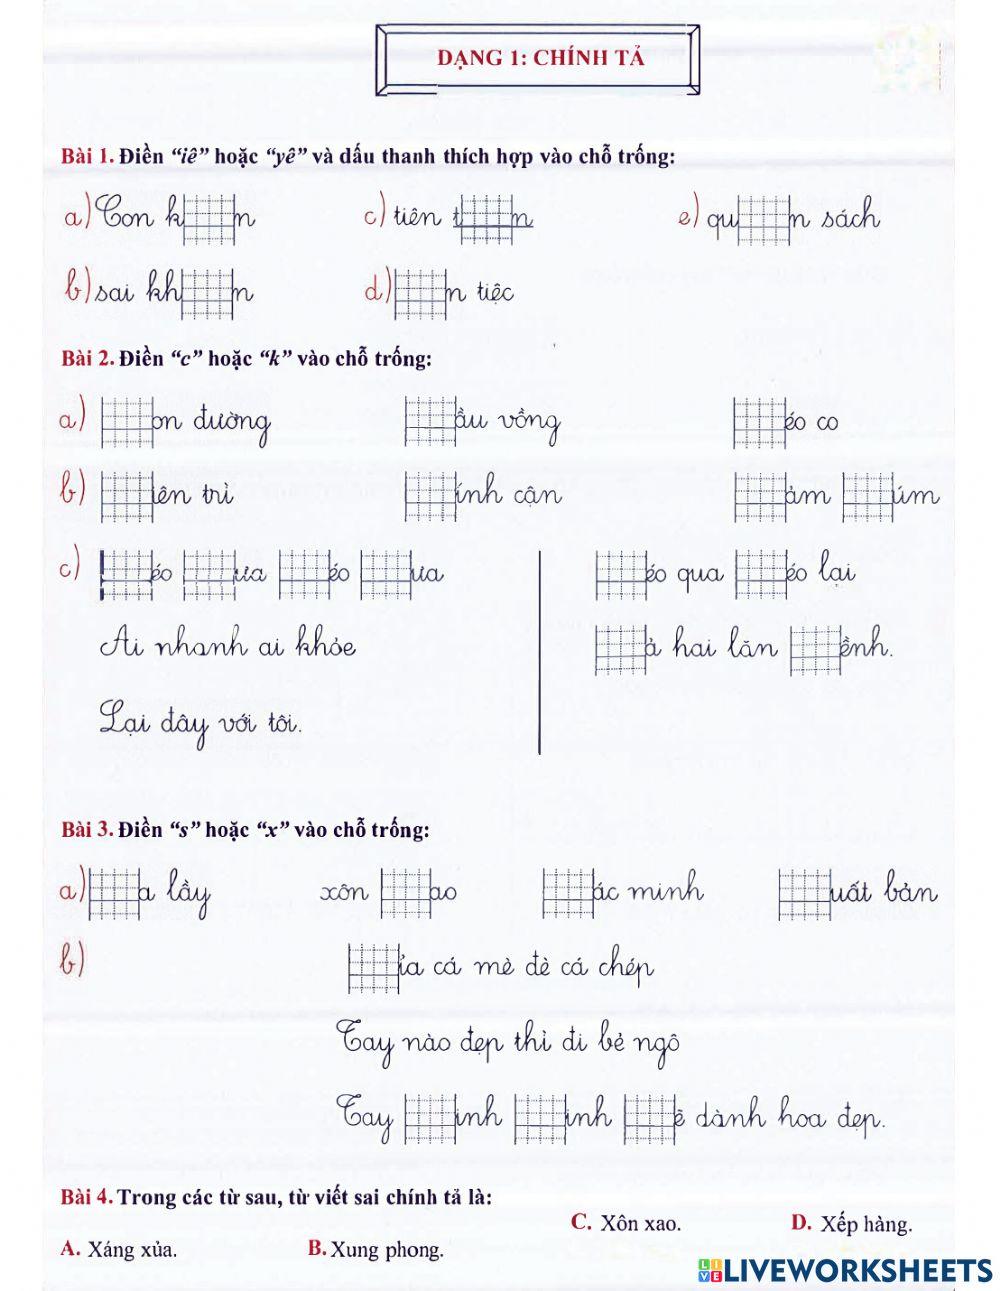 DẠNG 1: CHÍNH TẢ
Bài 1. Điền “iê” hoặc “yê” và dấu thanh thích hợp vào chỗ trống:
a) Con k n c) tiên t n e) qu n sách
b) sai kh n d) n tiệc
Bài 2. Điền “c” hoặc “k” vào chỗ trống:
a) on đường ầu vồng éo co
b) iên trì ính cận ảm úm
c) éo ưa éo ưa éo qua éo lại
Ai nhanh ai khỏe ả hai lăn ềnh.
Lại đây với tôi.
Bài 3. Điền “s” hoặc “x” vào chỗ trống:
a) a lầy xôn ao ác minh uất bản
b) ỉa cá mè đè cá chép
Tay nào đẹp thì đi bẻ ngô
Tay inh inh ẽ dành hoa đẹp.
Bài 4. Trong các từ sau, từ viết sai chính tả là:
A. Xáng xủa. B. Xung phong. C. Xôn xao. D. Xếp hàng.
LIVE LIVEWORKSHEETS